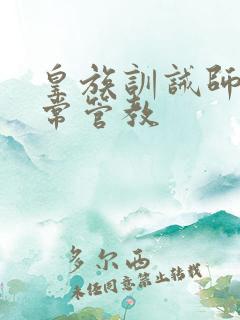 皇族訓誡師
常管教
多尔西
未经同意禁止转载